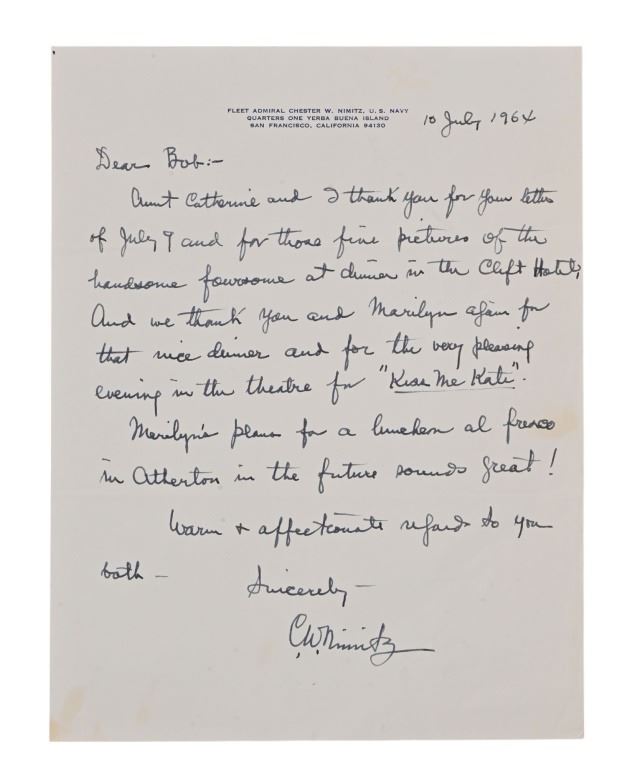 FLEET ADMIRAL CHESTER W. NIMITZ, U. S. NAVY
QUARTERS ONE YERBA BUENA ISLAND
SAN FRANCISCO, CALIFORNIA 94130
10 July 1964
Dear Bob:-
Aunt Catherine and I thank you for your letter
of July 9 and for those fine pictures of the
handsome foursome at dinner in the Clift Hotel,
And we thank you and Marilyn again for
that nice dinner and for the very pleasing
evening in the theatre for "Kiss Me Kate".
Marilyn's plans for a luncheon al fresco
in Atherton in the future sounds great!
Warm + affectionate regards to you
both -
Sincerely -
C.W. Nimitz